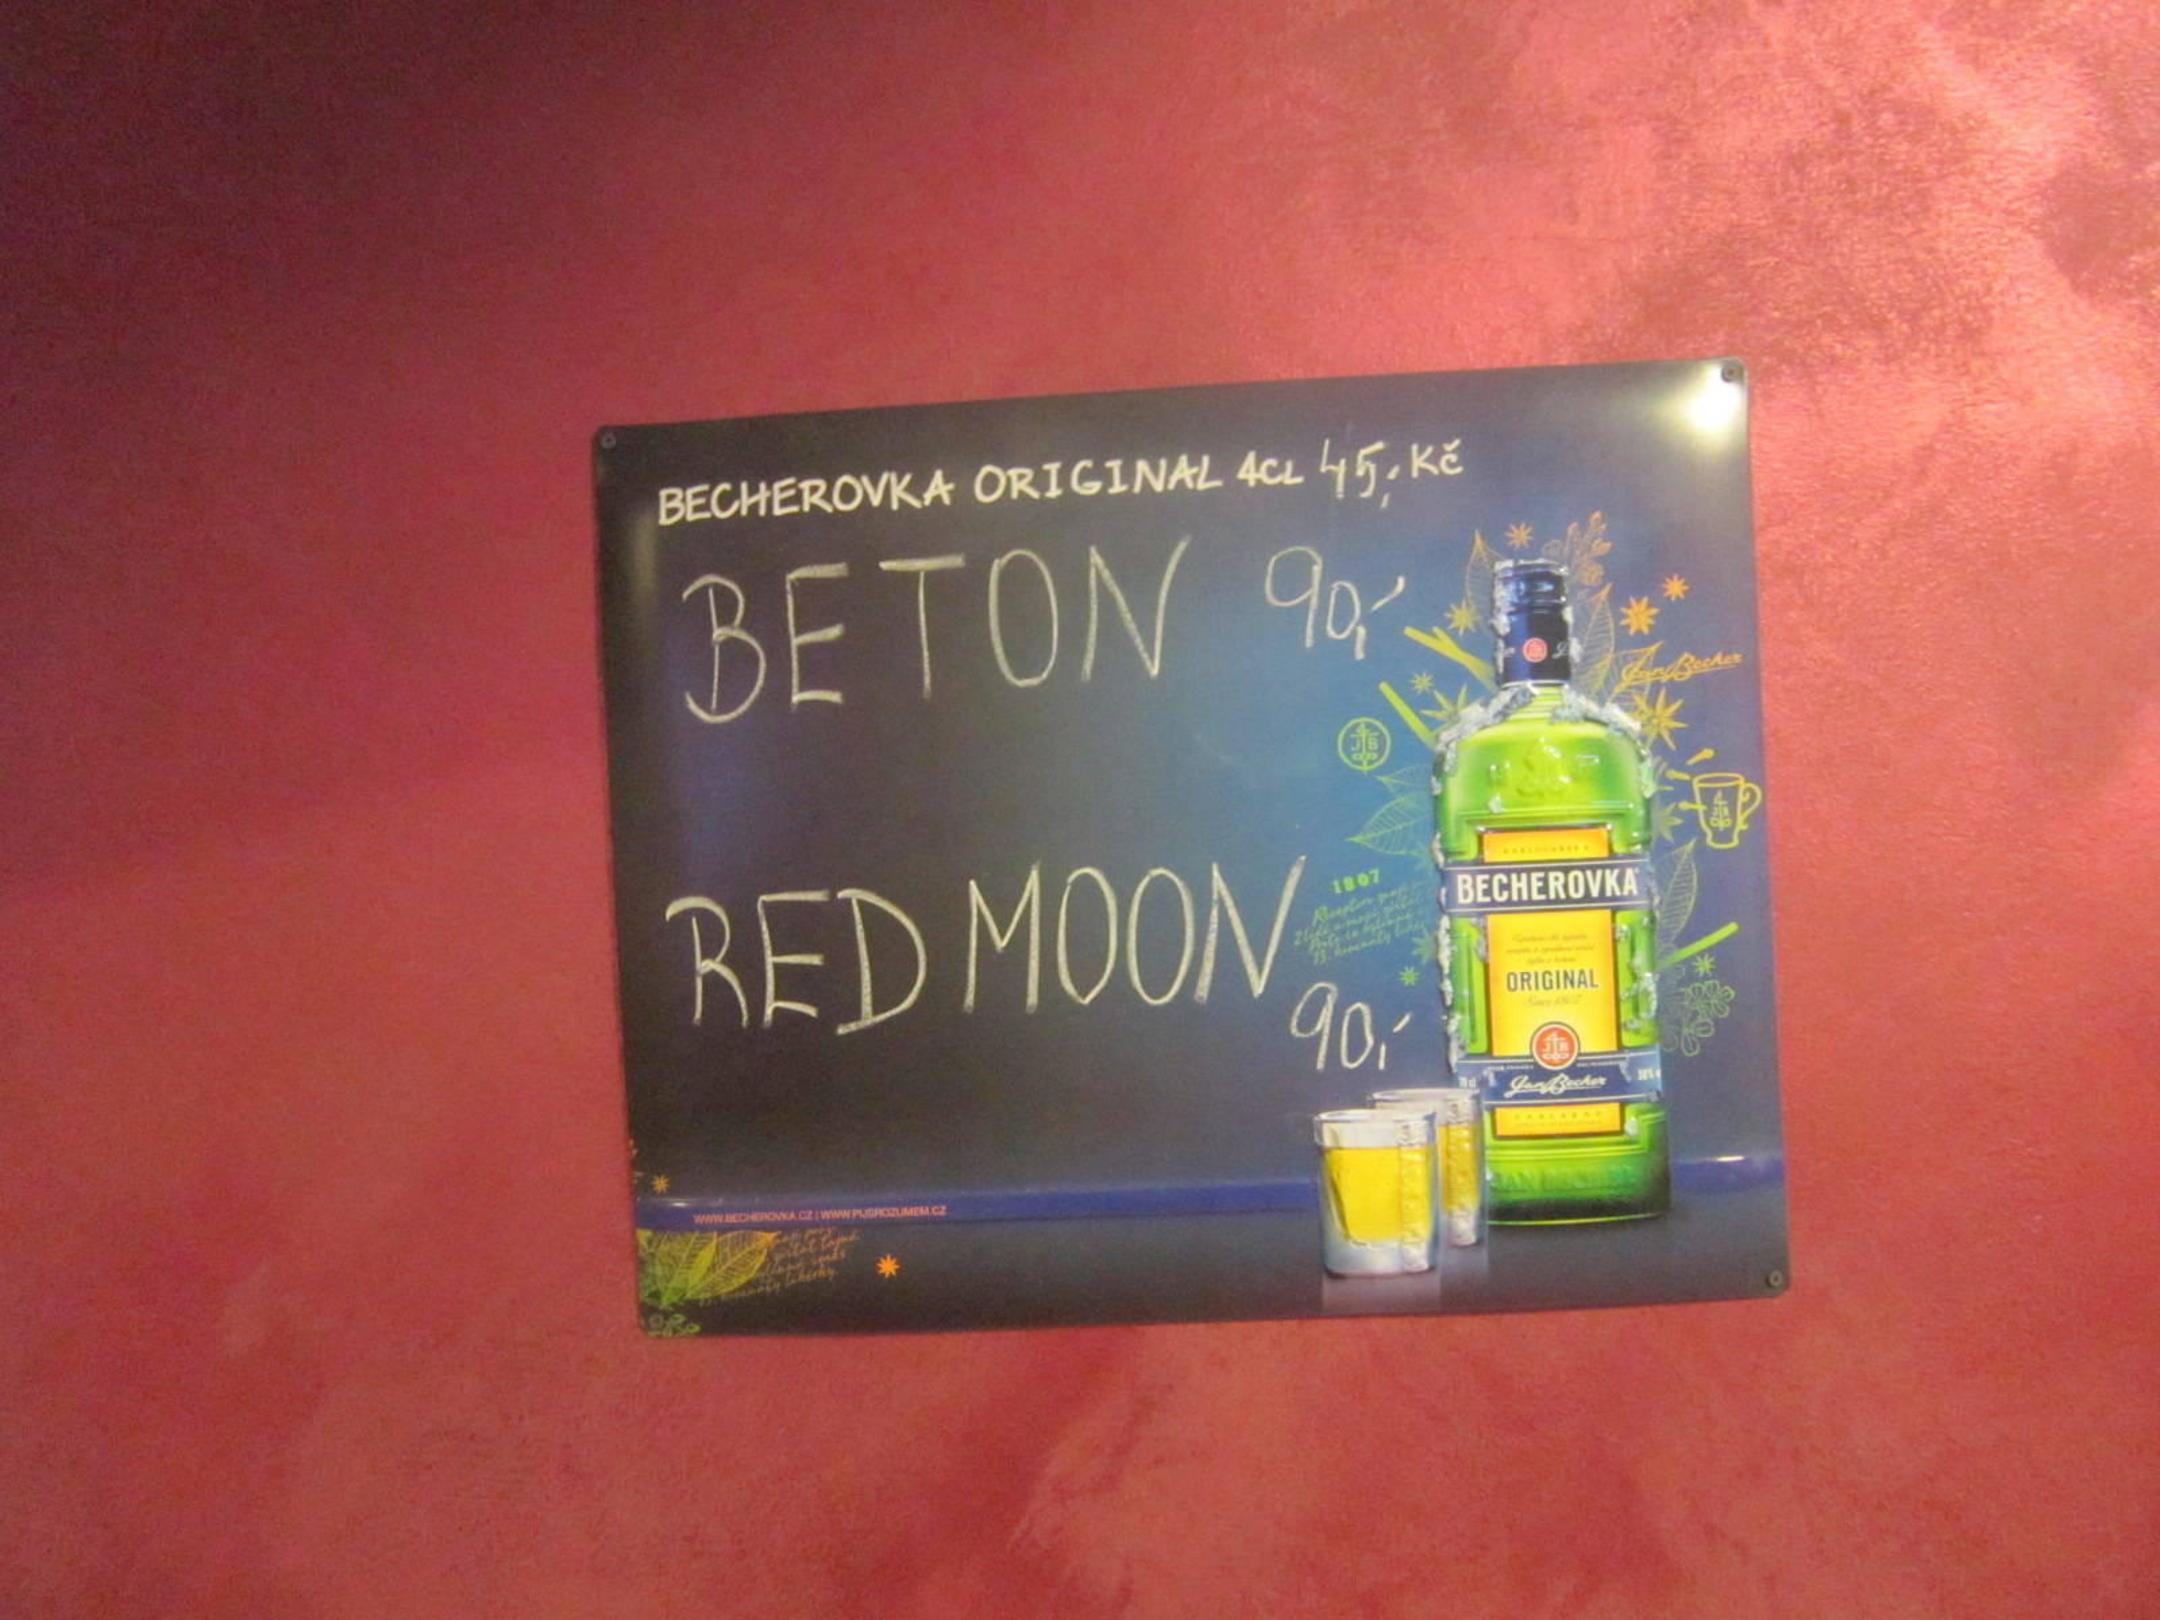 BECHEROVKA ORIGINAL 4CL 45,- Kč
BETON 90,-
Jan Becher
JTB
JTB
BECHEROVKA
RED MOON
1807
ORIGINAL
90,-
JTB
Jan Becher
WWW.BECHEROVKA.CZ | WWW.PIJSROZUMEM.CZ
JAN BECHER